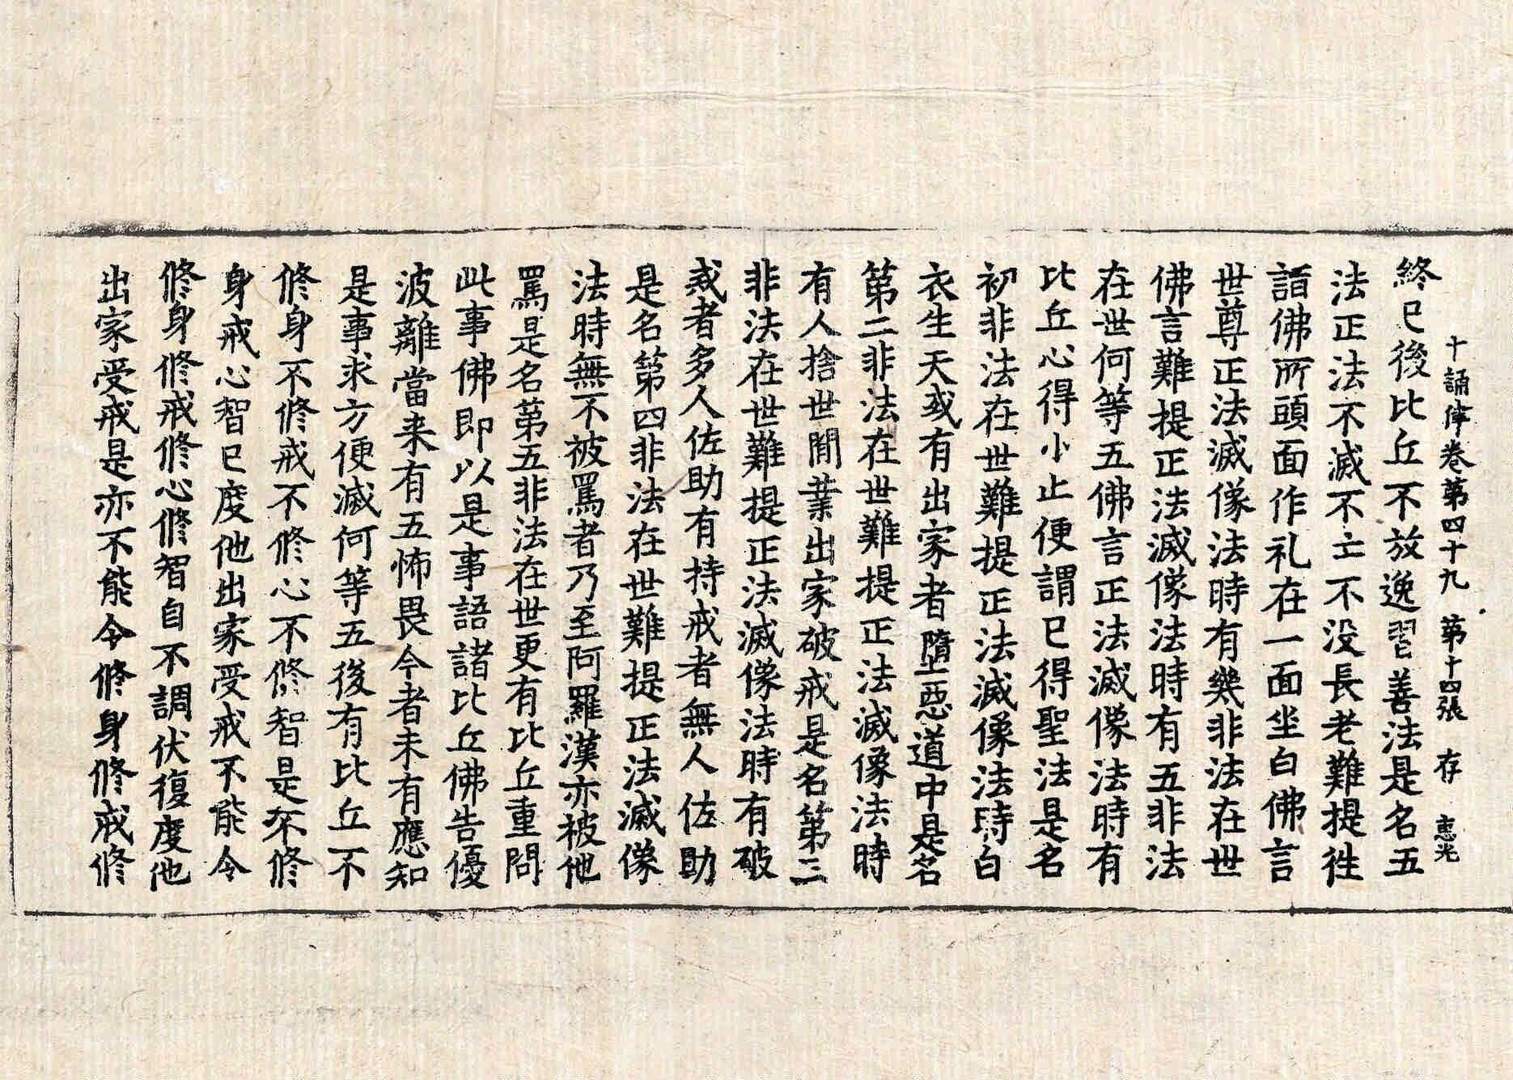 十誦律卷第四十九 第十四張 存 惠光
終已後比丘不放逸習善法是名五
法正法不滅不亡不没長老難提往
詣佛所頭面作礼在一面坐白佛言
世尊正法滅像法時有幾非法在世
佛言難提正法滅像法時有五非法
在世何等五佛言正法滅像法時有
比丘心得小止便謂已得聖法是名
初非法在世難提正法滅像法時白
衣生天或有出家者墮惡道中是名
第二非法在世難提正法滅像法時
有人捨世間業出家破戒是名第三
非法在世難提正法滅像法時有破
戒者多人佐助有持戒者無人佐助
是名第四非法在世難提正法滅像
法時無不被罵者乃至阿羅漢亦被他
罵是名第五非法在世更有比丘重問
此事佛即以是事語諸比丘佛告優
波離當来有五怖畏今者未有應知
是事求方便滅何等五後有比丘不
修身不修戒不修心不修智是不修
身戒心智已度他出家受戒不能令
修身修戒修心修智自不調伏復度他
出家受戒是亦不能令修身修戒修